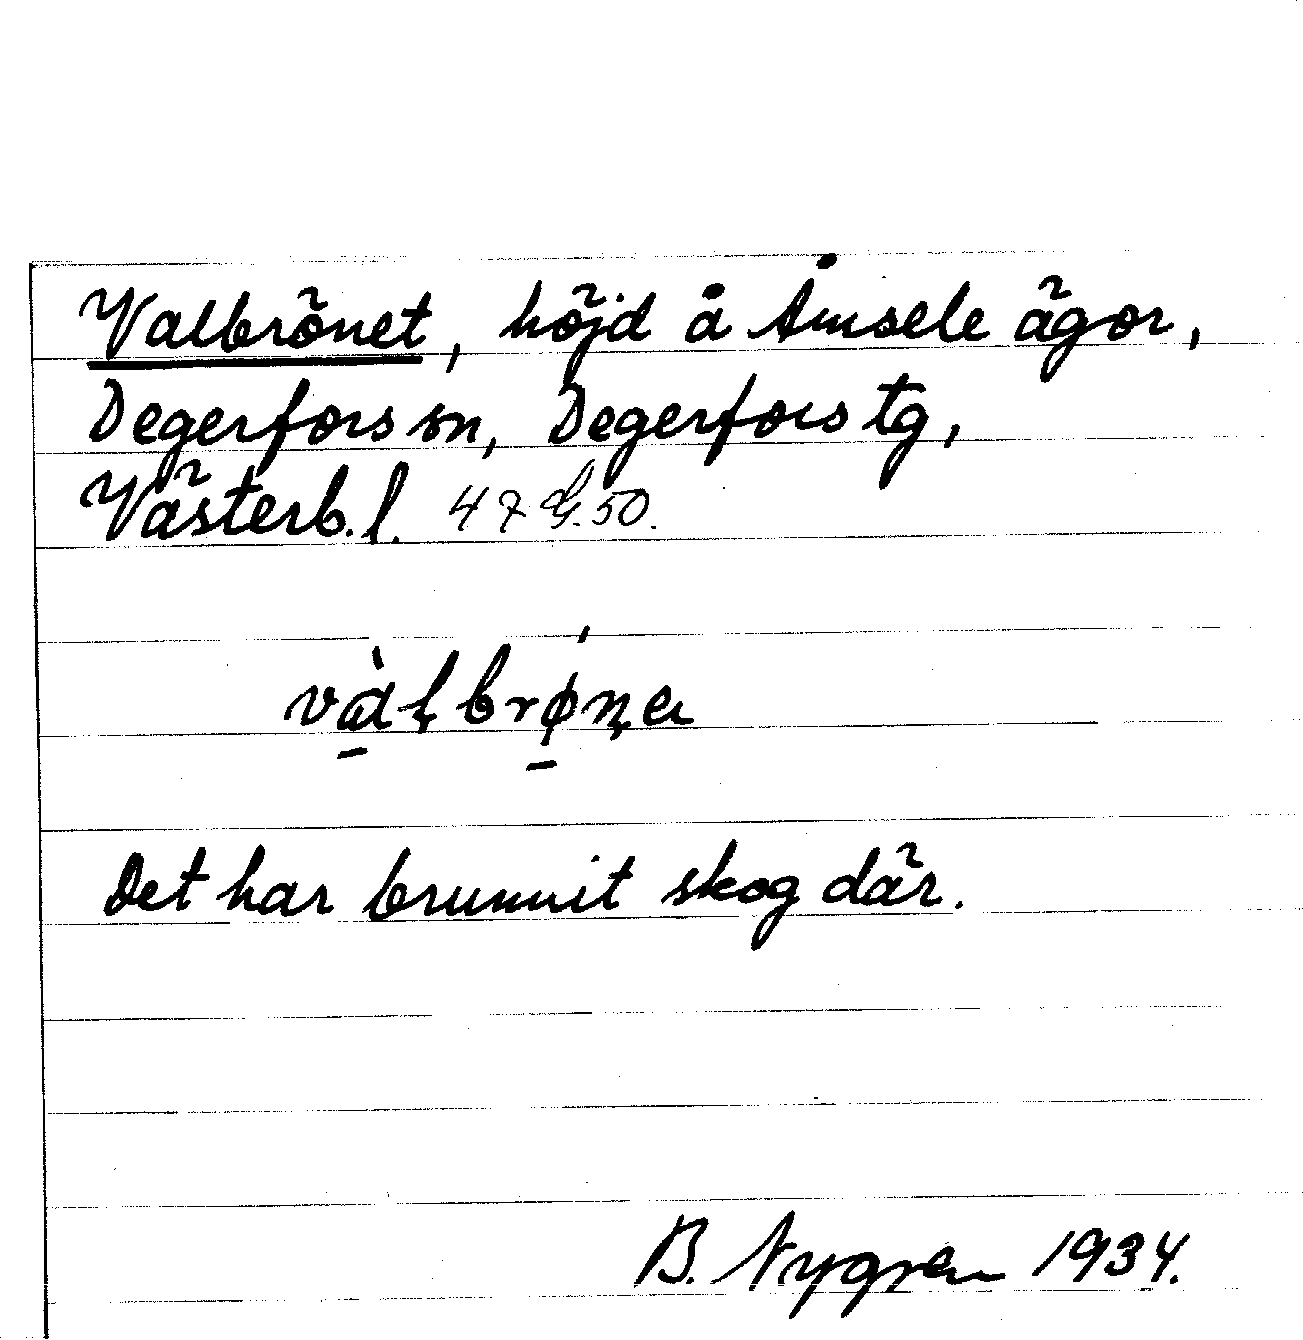 Valbrönet, höjd å Åmsele ägor,
Degerfors sn, Degerfors tg,
Västerb. l. 47 G. 50.
vàlbrǿna
Det har brunnit skog där.
B. Nygren 1934.